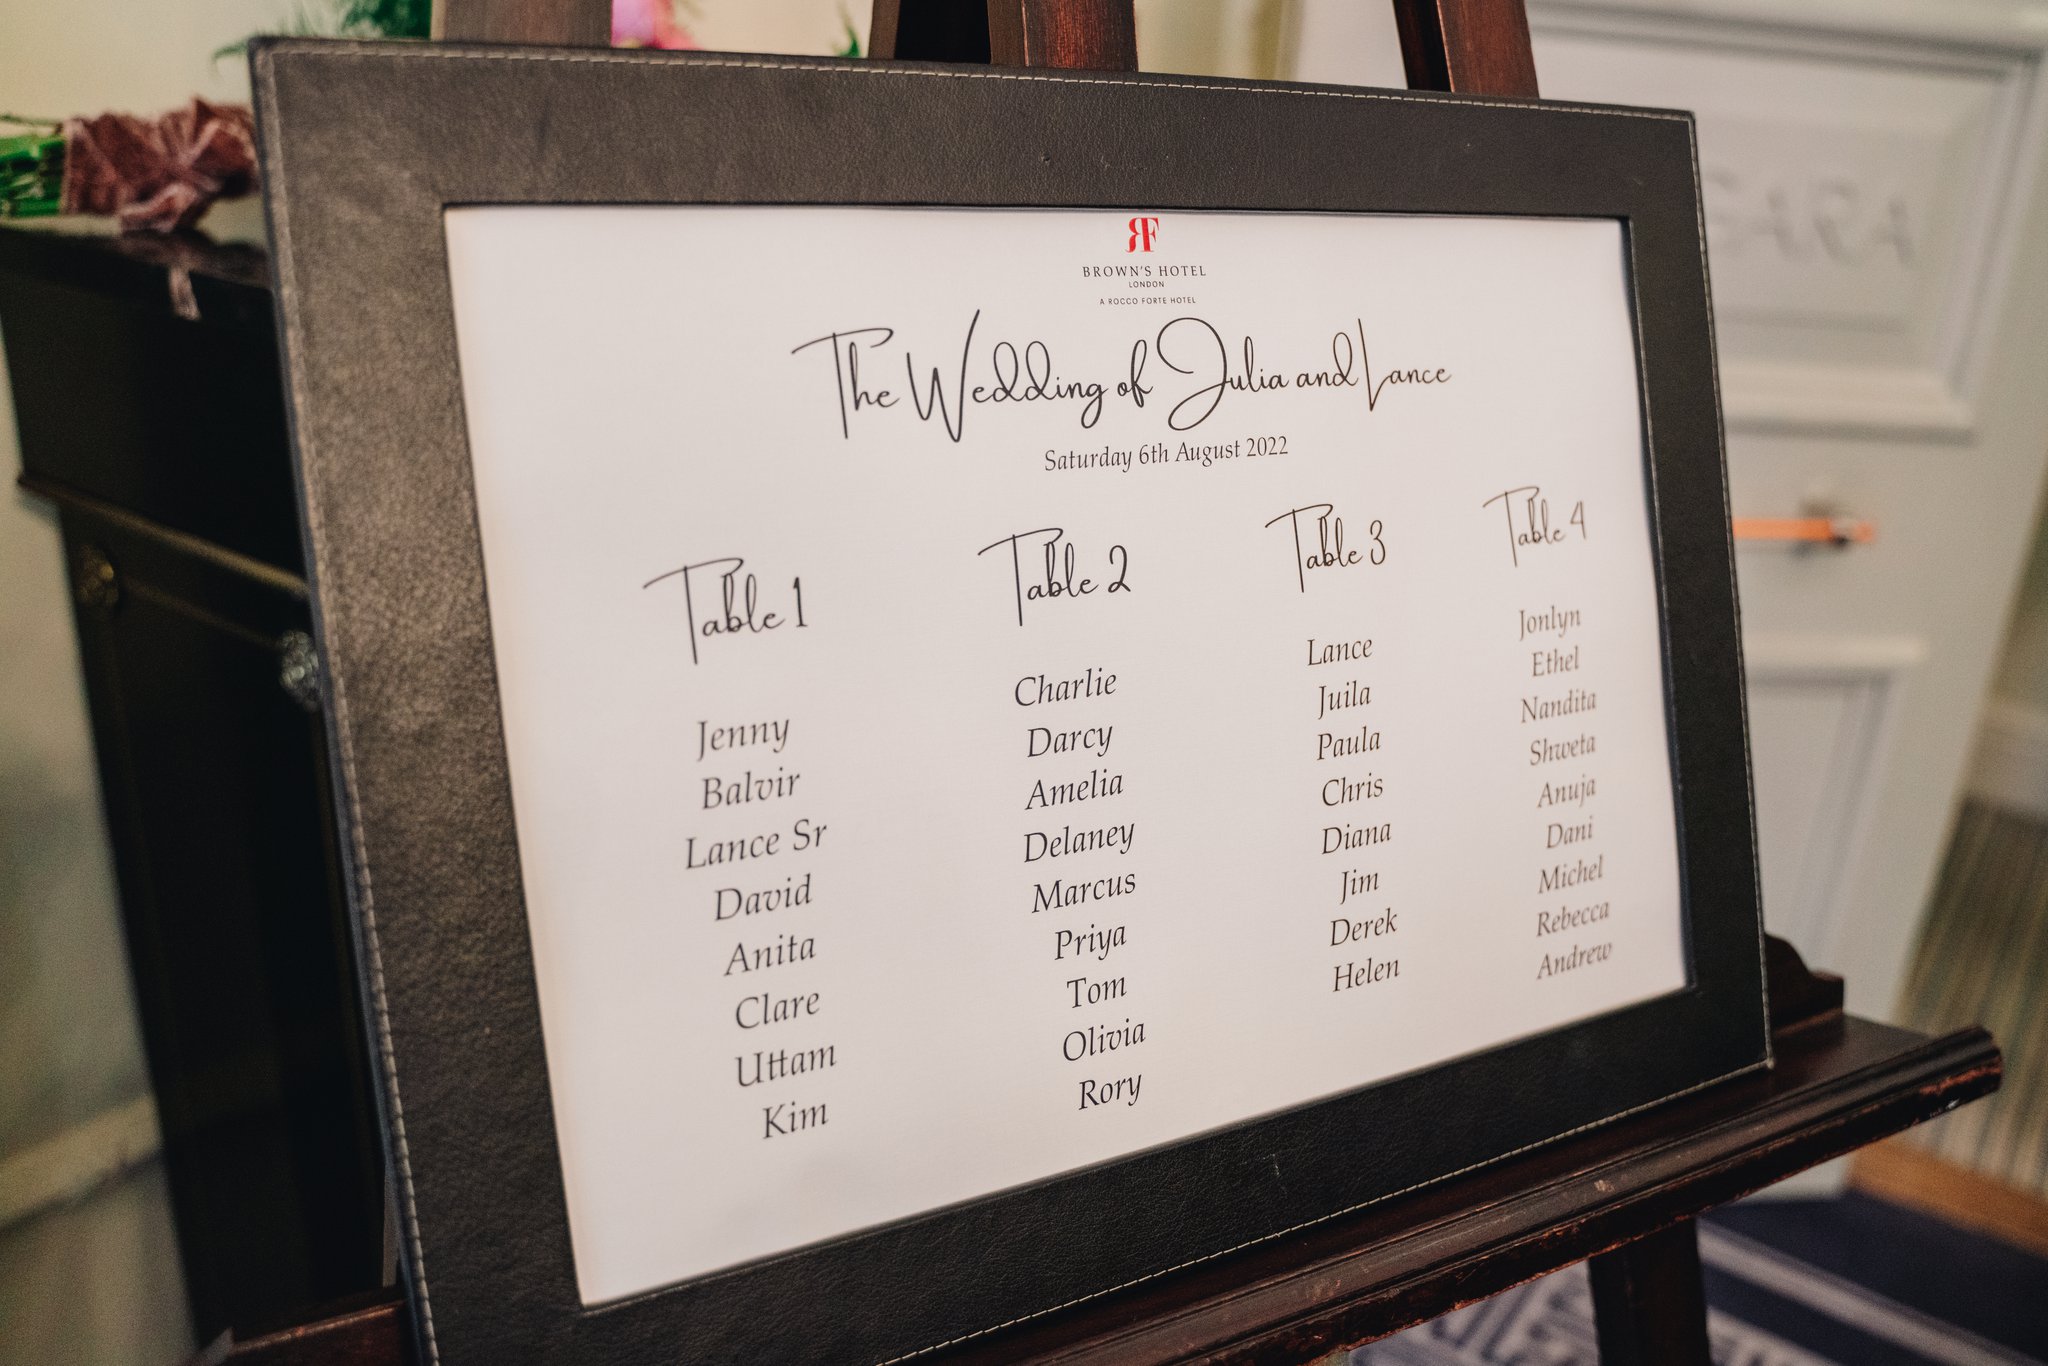 RF
BROWN'S HOTEL
LONDON
A ROCCO FORTE HOTEL
The Wedding of Julia and Lance
Saturday 6th August 2022
Table 1
Jenny
Balvir
Lance Sr
David
Anita
Clare
Uttam
Kim
Table 2
Charlie
Darcy
Amelia
Delaney
Marcus
Priya
Tom
Olivia
Rory
Table 3
Lance
Juila
Paula
Chris
Diana
Jim
Derek
Helen
Table 4
Jonlyn
Ethel
Nandita
Shweta
Anuja
Dani
Michel
Rebecca
Andrew